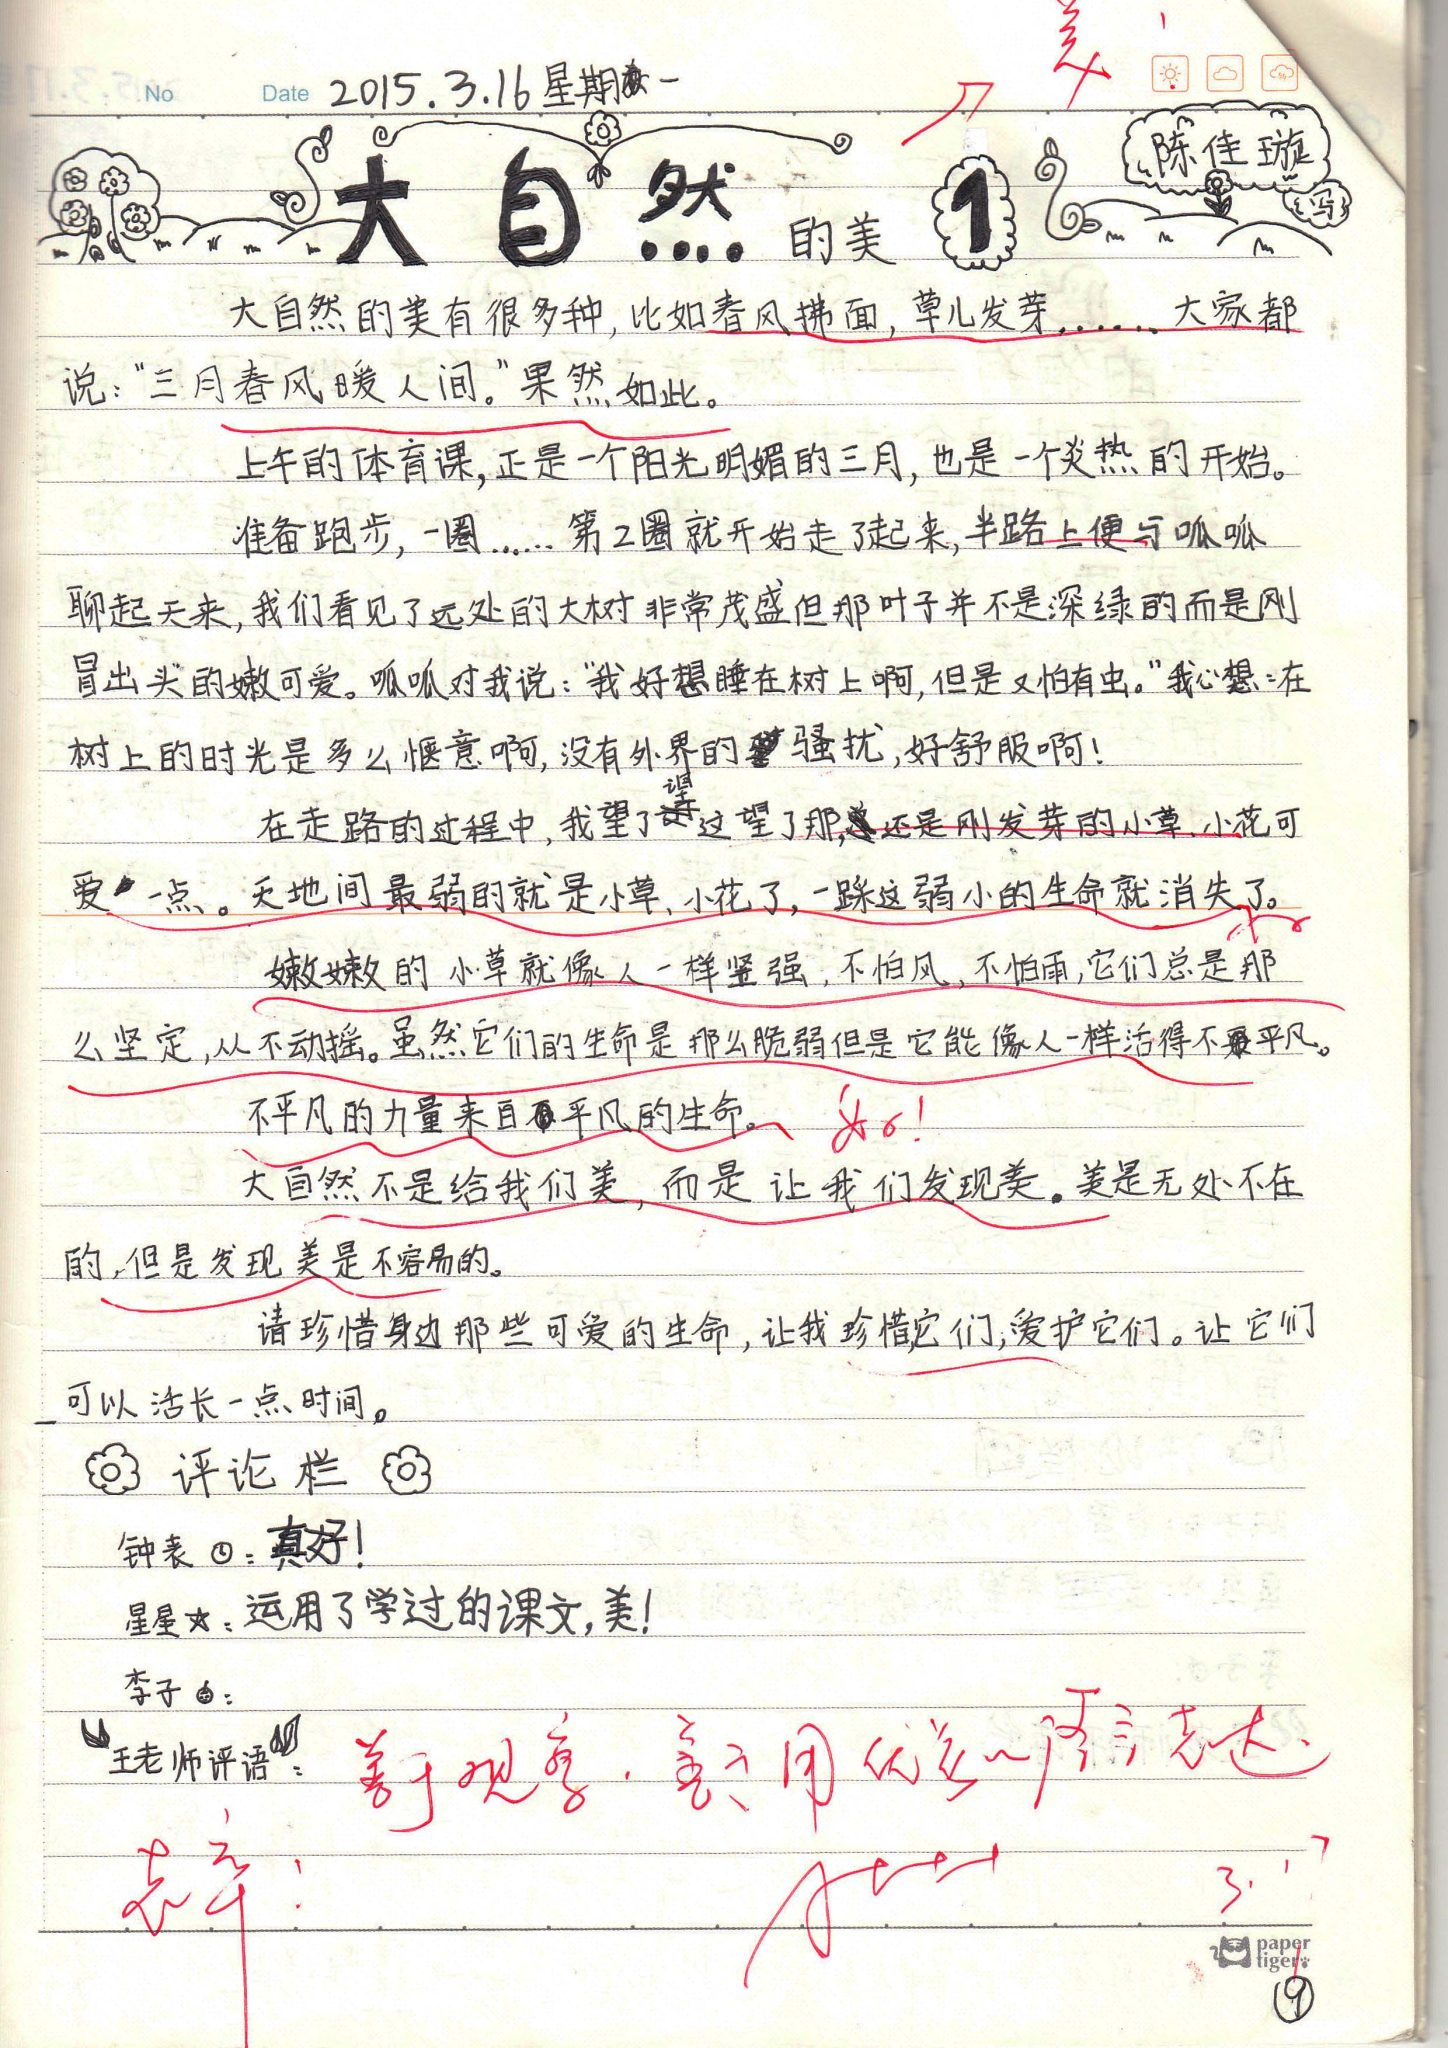 美
No Date 2015.3.16 星期一
陈佳璇
写
大自然的美 1
大自然的美有很多种,比如春风拂面,草儿发芽......大家都
说:“三月春风暖人间。”果然如此。
上午的体育课,正是一个阳光明媚的三月,也是一个炎热的开始。
准备跑步,一圈......第2圈就开始走了起来,半路上便与呱呱
聊起天来,我们看见了远处的大树非常茂盛但那叶子并不是深绿的而是刚
冒出头的嫩可爱。呱呱对我说:“我好想睡在树上啊,但是又怕有虫。”我心想:在
树上的时光是多么惬意啊,没有外界的骚扰,好舒服啊!
在走路的过程中,我望了望这望了那,还是刚发芽的小草、小花可
爱一点。天地间最弱的就是小草、小花了,一踩这弱小的生命就消失了。
嫩嫩的小草就像人一样坚强,不怕风,不怕雨,它们总是那
么坚定,从不动摇。虽然它们的生命是那么脆弱但是它能像人一样活得不平凡。
不平凡的力量来自平凡的生命。 好!
大自然不是给我们美,而是让我们发现美。美是无处不在
的,但是发现美是不容易的。
请珍惜身边那些可爱的生命,让我珍惜它们,爱护它们。让它们
可以活长一点时间。
评论栏
钟表:真好!
星星:运用了学过的课文,美!
李子:
王老师评语: 善于观察,用优美语言表达
3.17
paper
tiger
9